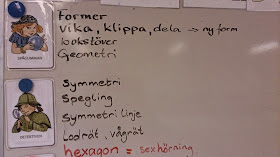 Former
Vika, klippa, dela → ny form
bokstäver
Geometri
Symmetri
Spegling
Symmetrilinje
Lodrät, vågrät
hexagon = sexhörning